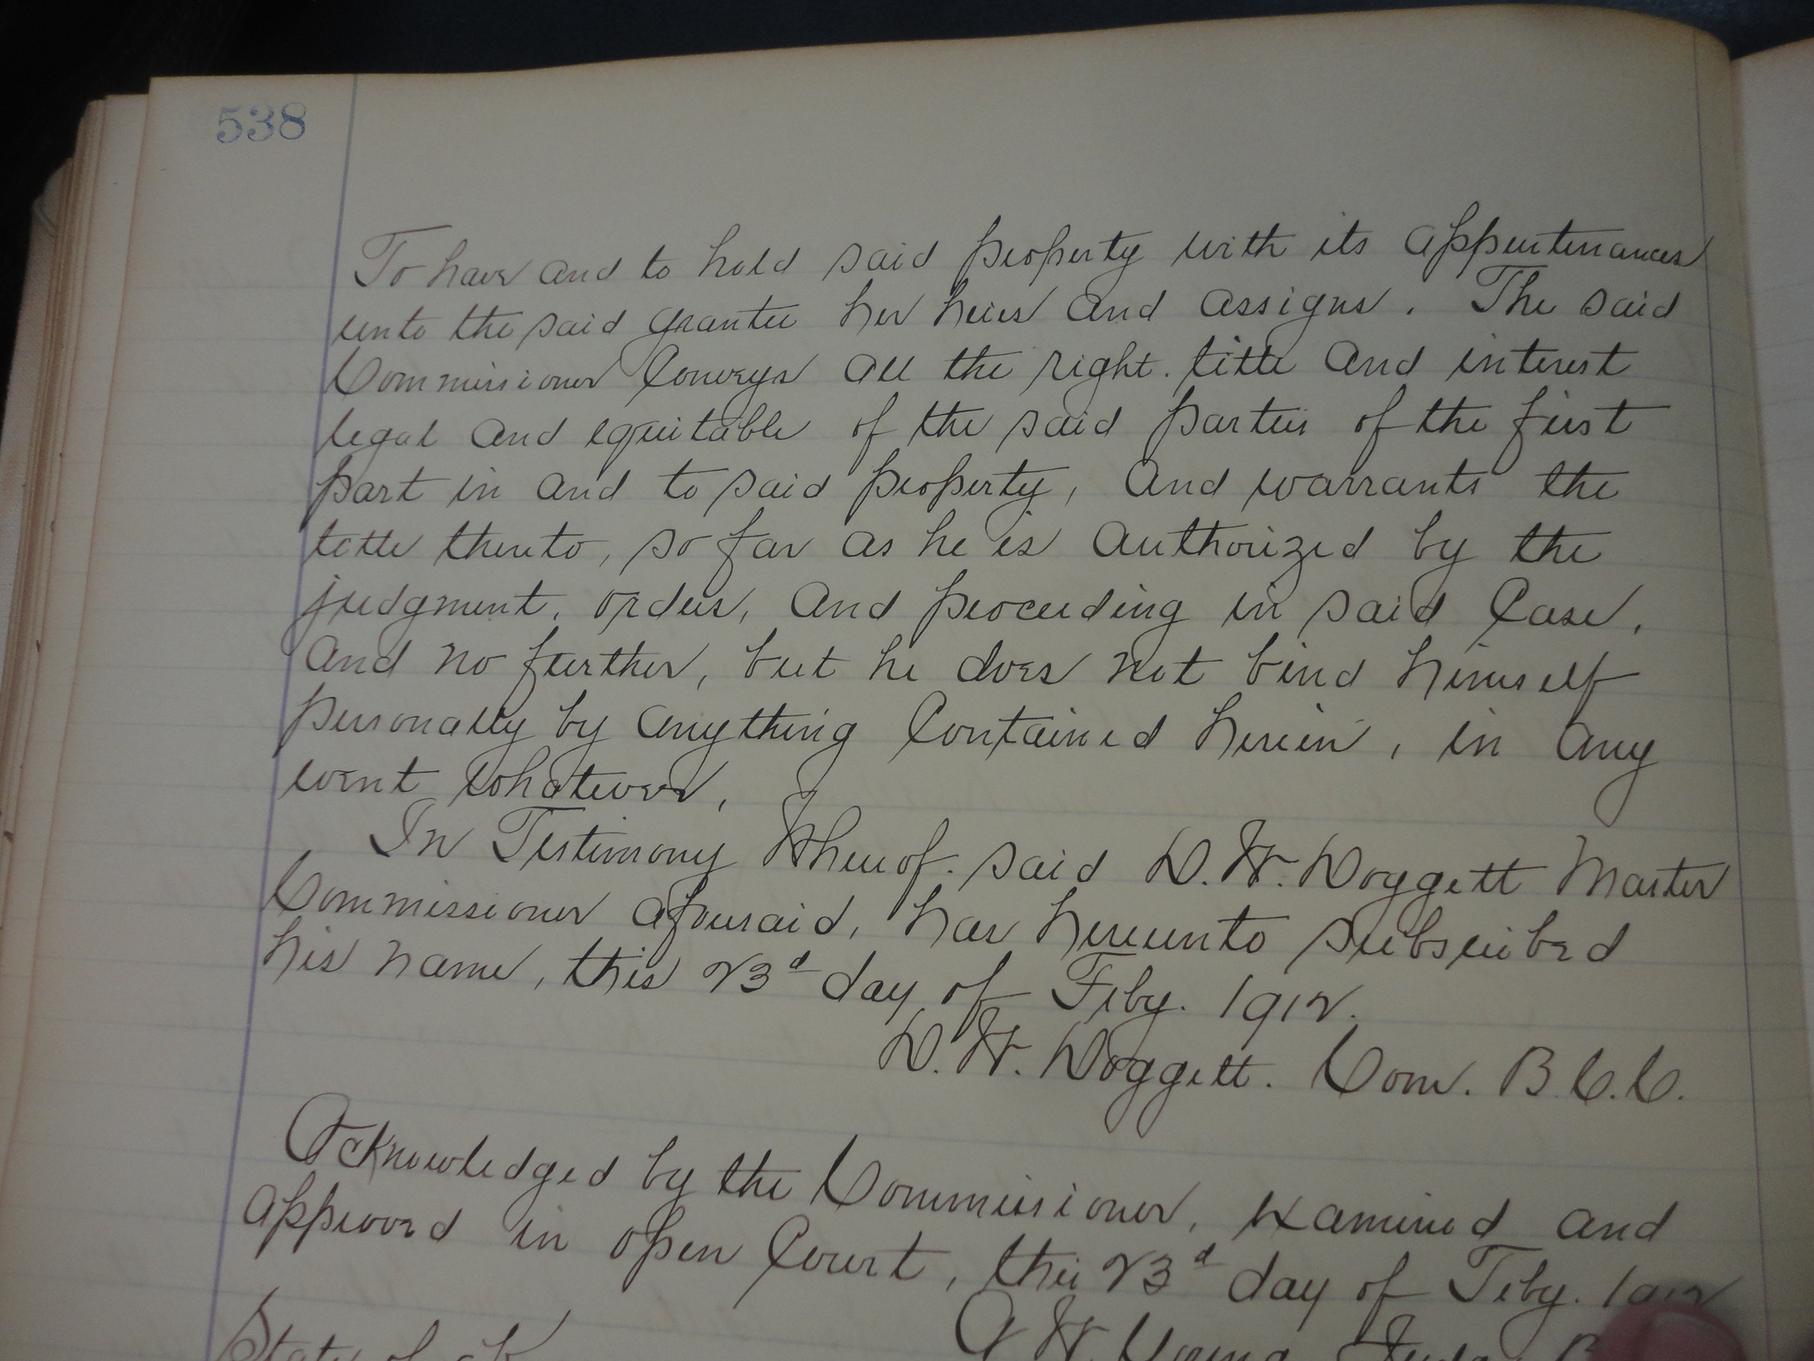 538
To have and to hold said property with its appurtenances
unto the said grantee her heirs and assigns. The said
Commissioner Conveys all the right. title and interest
legal and equitable of the said parties of the first
part in and to said property, and warrants the
title thereto, so far as he is authorized by the
judgment, orders, and proceeding in said Case,
and no further, but he does not bind himself
personally by anything Contained herein, in any
event whatever,
In Testimony Whereof. said D. W. Doggett Master
Commissioner aforesaid, has hereunto subscribed
his name, this 23d day of Feby. 1912.
D. W. Doggett. Com. B.C.C.
Acknowledged by the Commissioner, examined and
approved in open Court, this 23d day of Feby. 1912
State of
A W. Young Judge B